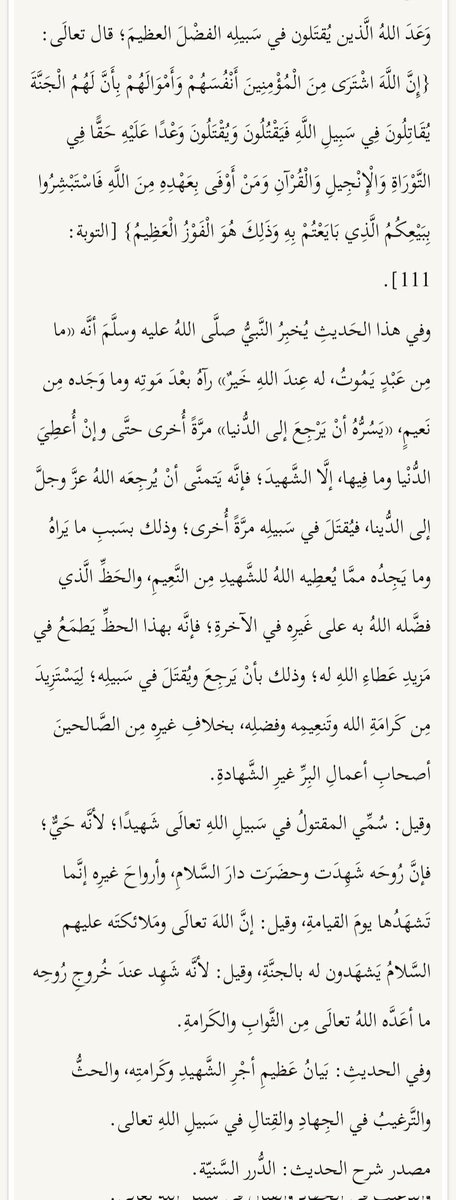 وَعَدَ اللهُ الَّذين يُقتَلون في سَبيلِه الفضْلَ العظيمَ؛ قال تعالَى:
{إِنَّ اللَّهَ اشْتَرَى مِنَ الْمُؤْمِنِينَ أَنْفُسَهُمْ وَأَمْوَالَهُمْ بِأَنَّ لَهُمُ الْجَنَّةَ
يُقَاتِلُونَ فِي سَبِيلِ اللَّهِ فَيَقْتُلُونَ وَيُقْتَلُونَ وَعْدًا عَلَيْهِ حَقًّا فِي
التَّوْرَاةِ وَالْإِنْجِيلِ وَالْقُرْآنِ وَمَنْ أَوْفَى بِعَهْدِهِ مِنَ اللَّهِ فَاسْتَبْشِرُوا
بِبَيْعِكُمُ الَّذِي بَايَعْتُمْ بِهِ وَذَلِكَ هُوَ الْفَوْزُ الْعَظِيمُ} [التوبة:
111].
وفي هذا الحَديثِ يُخبِرُ النَّبيُّ صلَّى اللهُ عليه وسلَّمَ أنَّه «ما
مِن عَبْدٍ يَمُوتُ، له عِندَ اللهِ خَيرٌ» رآهُ بعْدَ مَوتِه وما وَجَده مِن
نَعيمٍ، «يَسُرُّهُ أنْ يَرْجِعَ إلى الدُّنيا» مرَّةً أُخرى حتَّى وإنْ أُعطِيَ
الدُّنْيا وما فِيها، إلَّا الشَّهيدَ؛ فإنَّه يَتمنَّى أنْ يُرجِعَه اللهُ عزَّ وجلَّ
إلى الدُّينا، فيُقتَلَ في سَبيلِه مرَّةً أُخرى؛ وذلك بسَببِ ما يَراهُ
وما يَجِدُه ممَّا يُعطِيه اللهُ للشَّهيدِ مِن النَّعِيمِ، والحَظِّ الَّذي
فضَّله اللهُ به على غَيرِه في الآخرةِ؛ فإنَّه بهذا الحظِّ يَطمَعُ في
مَزيدِ عَطاءِ اللهِ له؛ وذلك بأنْ يَرجِعَ ويُقتَلَ في سَبيلِه؛ لِيَسْتَزِيدَ
مِن كَرامَةِ الله وتَنعِيمِه وفضلِه، بخلافِ غيرِه مِن الصَّالحينَ
أصحابِ أعمالِ البِرِّ غيرِ الشَّهادةِ.
وقيل: سُمِّي المقتولُ في سَبيلِ اللهِ تعالَى شَهيدًا؛ لأنَّه حَيٌّ؛
فإنَّ رُوحَه شَهِدَت وحضَرَت دارَ السَّلامِ، وأرواحَ غيرِه إنَّما
تَشهَدُها يومَ القيامةِ، وقيل: إنَّ اللهَ تعالَى ومَلائكتَه عليهم
السَّلامُ يَشهَدون له بالجنَّةِ، وقيل: لأنَّه شَهِد عندَ خُروجِ رُوحِه
ما أعَدَّه اللهُ تعالَى مِن الثَّوابِ والكَرامةِ.
وفي الحديثِ: بَيانُ عَظيمِ أجْرِ الشَّهيدِ وكَرامتِه، والحثُّ
والتَّرغيبُ في الجِهادِ والقِتالِ في سَبيلِ اللهِ تعالى.
مصدر شرح الحديث: الدُّرر السَّنيّة.